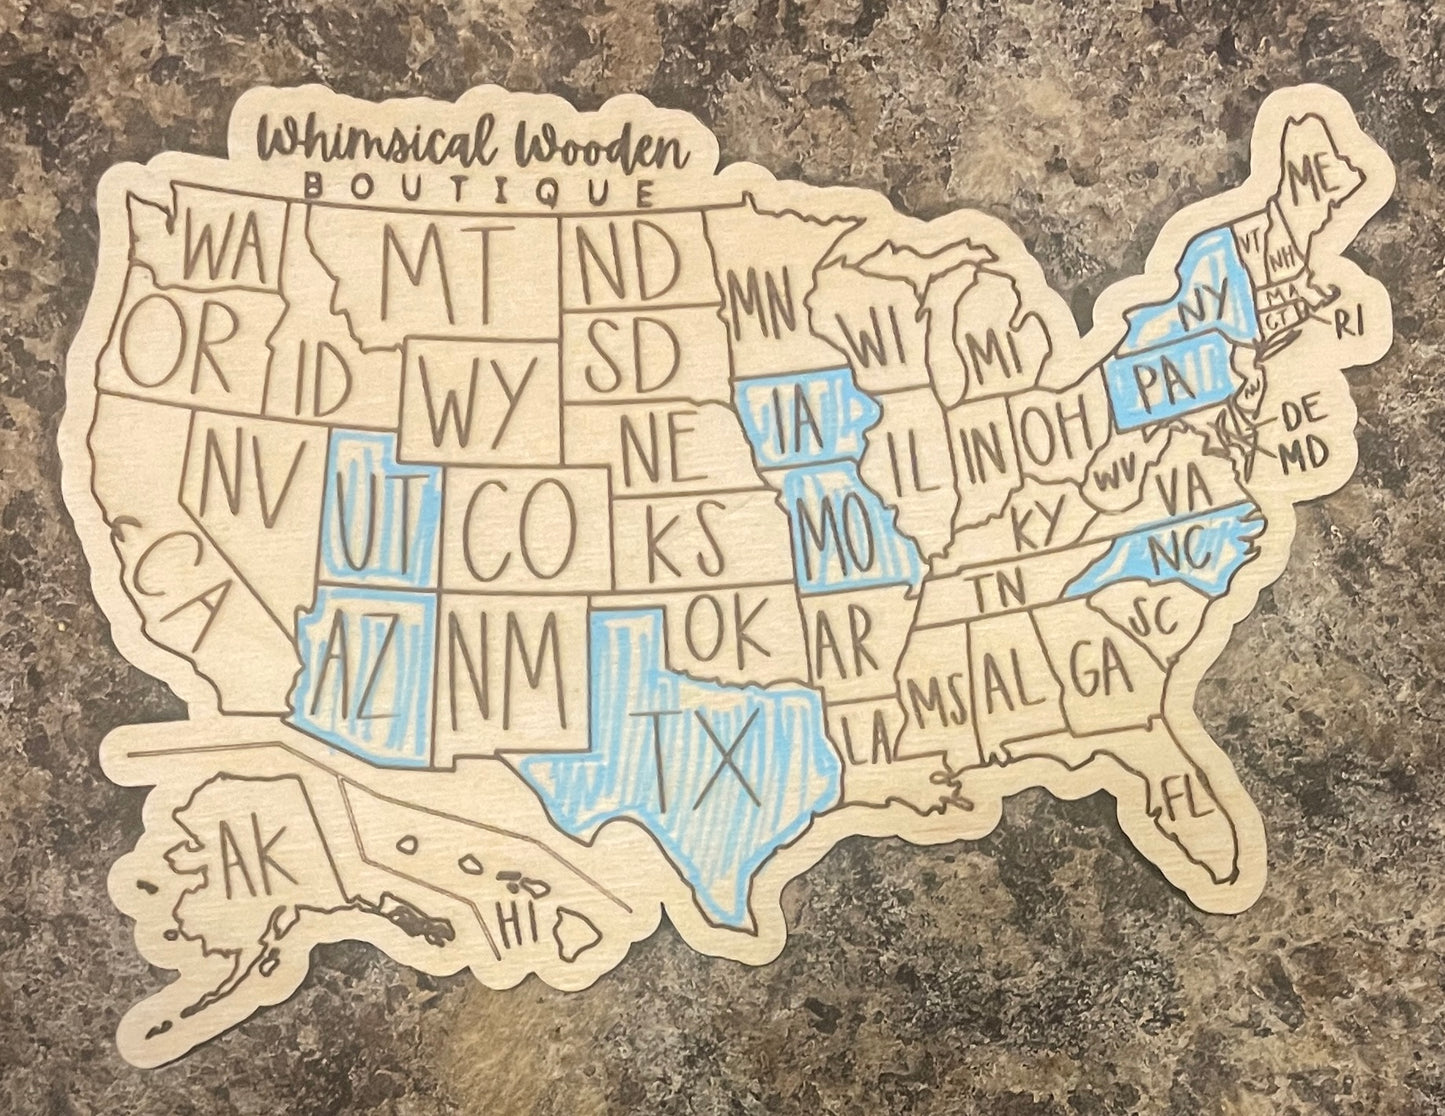 Whimsical Wooden
BOUTIQUE
ME
WA
MT
ND
MN
VT
NH
OR
ID
WY
SD
WI
MI
NY
MA
CT
RI
NV
UT
CO
NE
IA
IL
IN
OH
PA
NJ
DE
MD
CA
KS
MO
KY
WV
VA
AZ
NM
OK
AR
TN
NC
SC
TX
LA
MS
AL
GA
FL
AK
HI